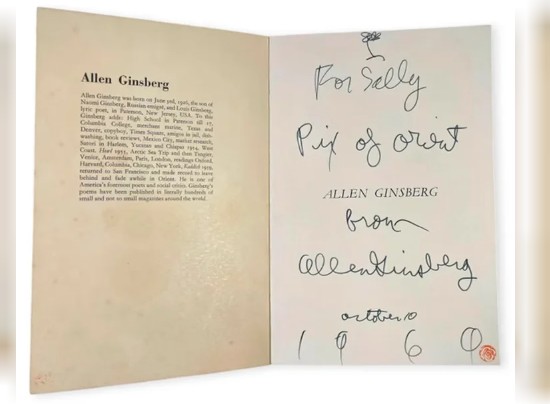 Allen Ginsberg
Allen Ginsberg was born on June 3rd, 1926, the son of
Naomi Ginsberg, Russian emigré, and Louis Ginsberg,
lyric poet, in Paterson, New Jersey, USA. To this
Ginsberg adds: High School in Paterson till 17,
Columbia College, merchant marine, Texas and
Denver, copyboy, Times Square, amigos in jail, dish-
washing, book reviews, Mexico City, market research,
Satori in Harlem, Yucatan and Chiapas 1954, West
Coast. Howl 1955, Arctic Sea Trip and then Tangier,
Venice, Amsterdam, Paris, London, readings Oxford,
Harvard, Columbia, Chicago, New York, Kaddish 1959,
returned to San Francisco and made record to leave
behind and fade awhile in Orient. He is one of
America's foremost poets and social critics. Ginsberg's
poems have been published in literally hundreds of
small and not so small magazines around the world.
For Sally
Pix of orient
ALLEN GINSBERG
from
Allen Ginsberg
october 10
1 9 6 9